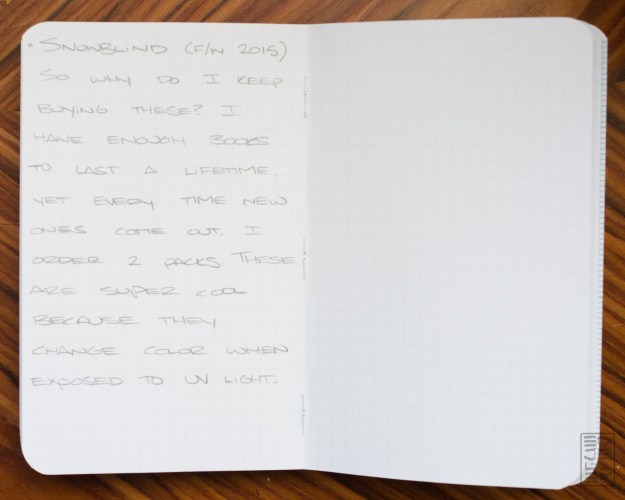 • SNOWBLIND (F/W 2015)
SO WHY DO I KEEP
BUYING THESE? I
HAVE ENOUGH BOOKS
TO LAST A LIFETIME.
YET EVERY TIME NEW
ONES COME OUT, I
ORDER 2 PACKS THESE
ARE SUPER COOL
BECAUSE THEY
CHANGE COLOR WHEN
EXPOSED TO UV LIGHT.